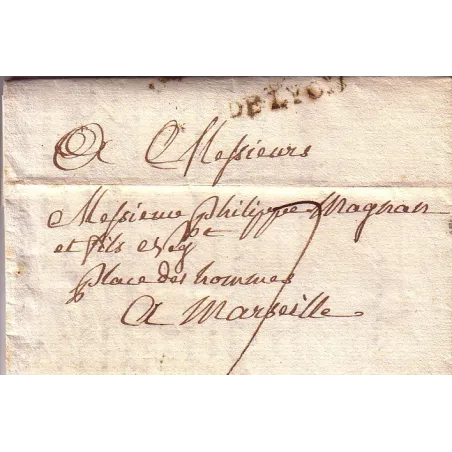 DE LYON
A Messieurs
Messieurs Philippe Magnan
et fils
place des hommes
A Marseille
7